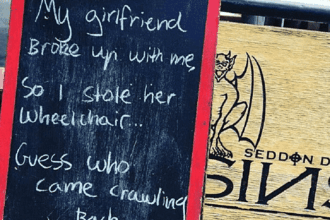 My girlfriend
Broke up with me,
So I stole her
wheelchair..
Guess who
came crawling
Back
SEDDON D